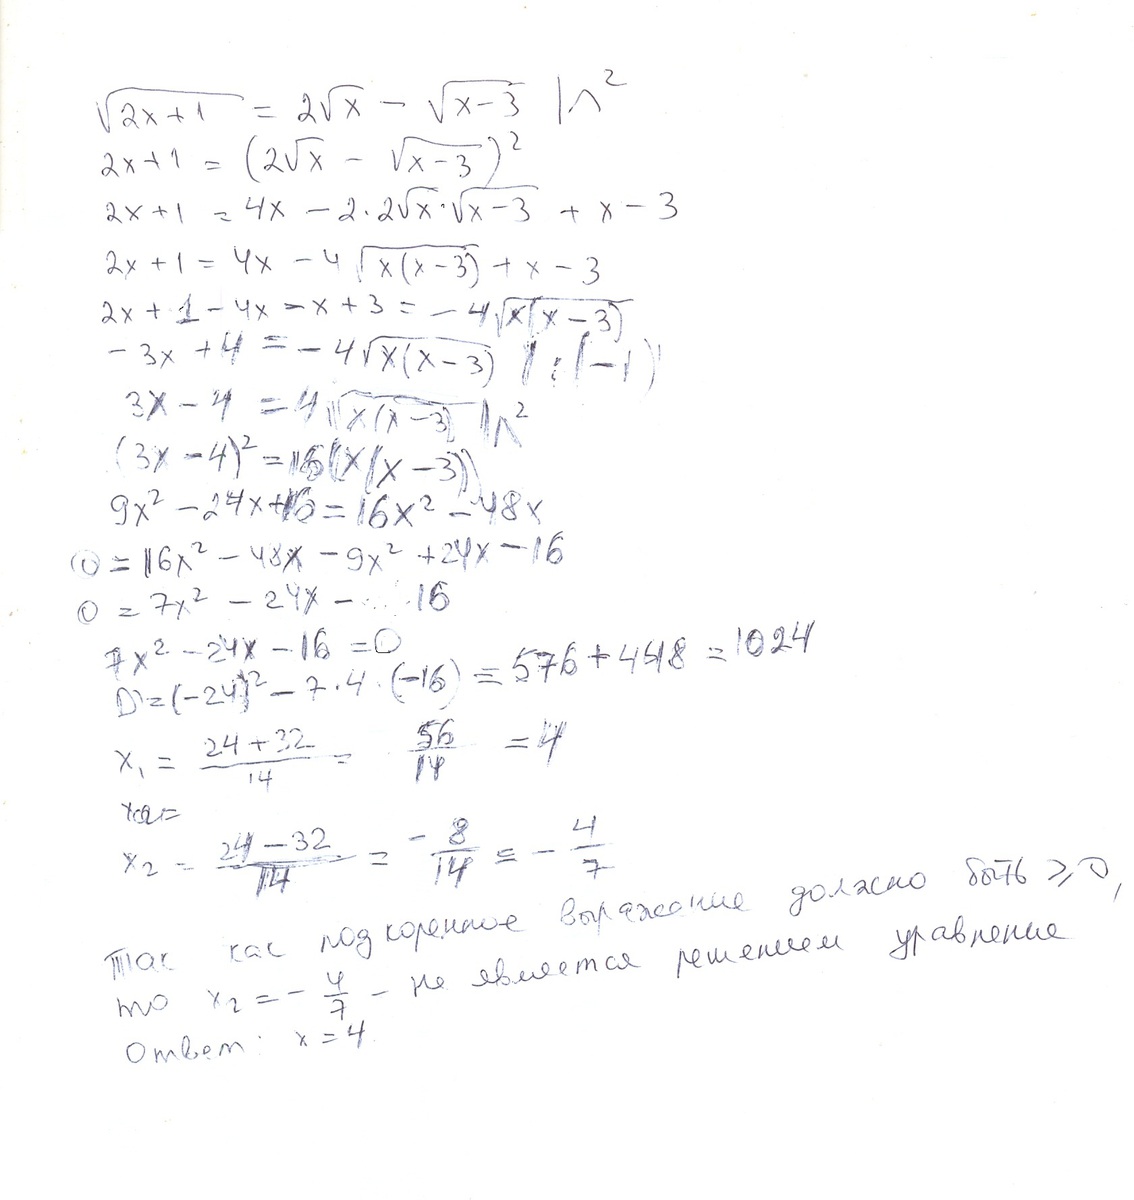 √(2x+1) = 2√x − √(x−3) |^2
2x+1 = (2√x − √(x−3))²
2x+1 = 4x − 2·2√x·√(x−3) + x − 3
2x+1 = 4x − 4√(x(x−3)) + x − 3
2x+1−4x−x+3 = −4√(x(x−3))
−3x+4 = −4√(x(x−3)) |:(−1)
3x−4 = 4√(x(x−3)) |^2
(3x−4)² = 16(x(x−3))
9x²−24x+16 = 16x²−48x
0 = 16x²−48x−9x²+24x−16
0 = 7x²−24x−16
7x²−24x−16 = 0
D = (−24)²−7·4·(−16) = 576+448 = 1024
x₁ = (24+32)/14 = 56/14 = 4
x2=
x₂ = (24−32)/14 = −8/14 = −4/7
Так как подкоренное выражание должно быть ≥0,
то x₂ = −4/7 − не является решением уравнение
Ответ: x = 4